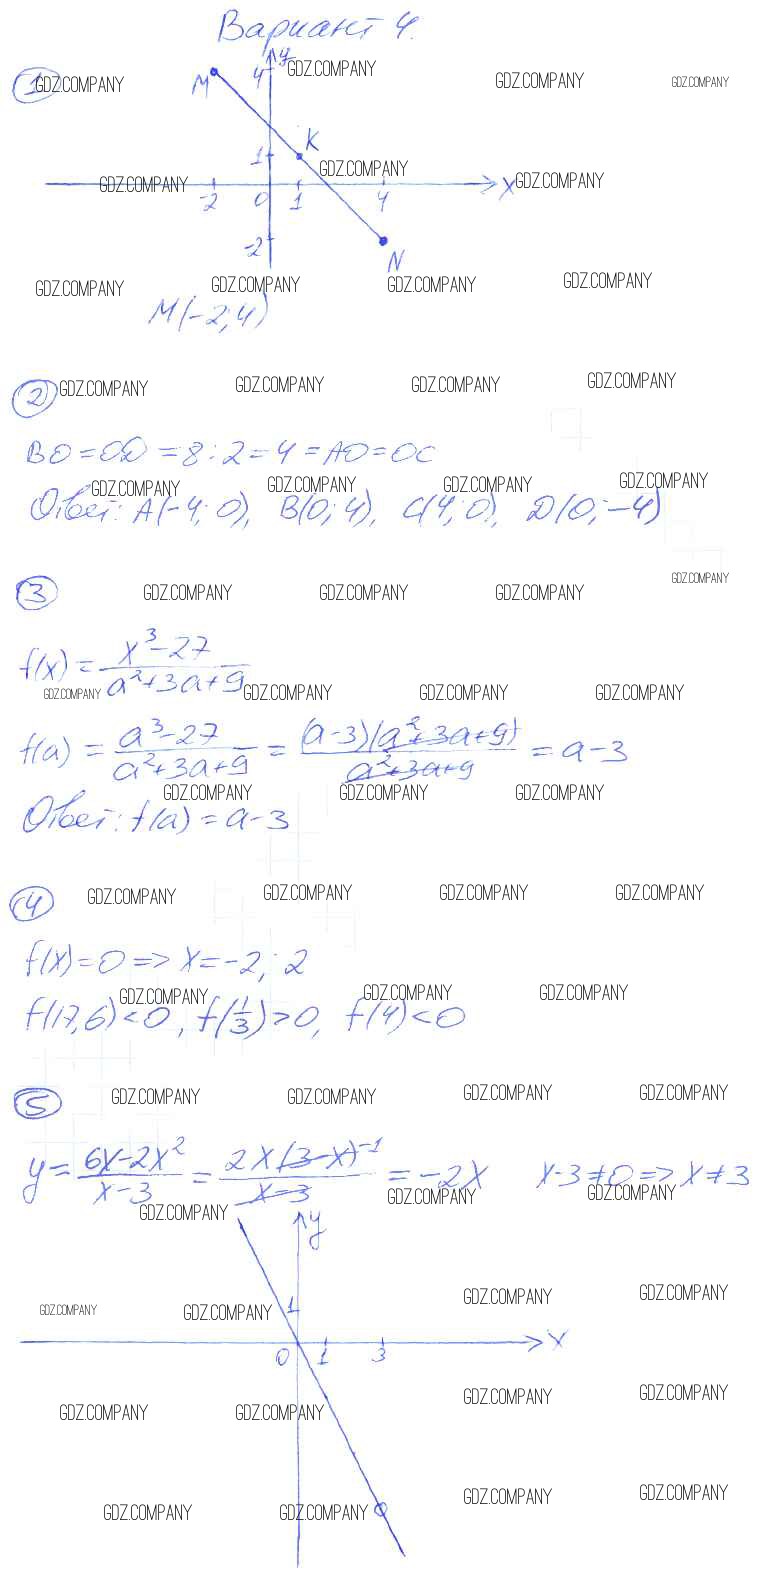 Вариант 4.
1
GDZ.COMPANY GDZ.COMPANY GDZ.COMPANY GDZ.COMPANY
M 4 y
K
1
GDZ.COMPANY GDZ.COMPANY GDZ.COMPANY
-2 0 1 4 X
-2
N
GDZ.COMPANY GDZ.COMPANY GDZ.COMPANY GDZ.COMPANY
M(-2;4)
2
GDZ.COMPANY GDZ.COMPANY GDZ.COMPANY GDZ.COMPANY
BO=OD=8:2=4=AO=OC
GDZ.COMPANY GDZ.COMPANY GDZ.COMPANY GDZ.COMPANY
Ответ: A(-4;0), B(0;4), C(4;0), D(0;-4)
GDZ.COMPANY
3
GDZ.COMPANY GDZ.COMPANY GDZ.COMPANY
f(x) = (x³-27)/(a²+3a+9)
GDZ.COMPANY GDZ.COMPANY GDZ.COMPANY GDZ.COMPANY
f(a) = (a³-27)/(a²+3a+9) = ((a-3)(a²+3a+9))/(a²+3a+9) = a-3
GDZ.COMPANY GDZ.COMPANY GDZ.COMPANY
Ответ: f(a) = a-3
4
GDZ.COMPANY GDZ.COMPANY GDZ.COMPANY GDZ.COMPANY
f(x)=0 => x=-2; 2
GDZ.COMPANY GDZ.COMPANY GDZ.COMPANY
f(17,6)<0, f(1/3)>0, f(4)<0
5
GDZ.COMPANY GDZ.COMPANY GDZ.COMPANY GDZ.COMPANY
y = (6x-2x²)/(x-3) = (2x(3-x)⁻¹)/(x-3) = -2x x-3≠0 => x≠3
GDZ.COMPANY GDZ.COMPANY GDZ.COMPANY
y
GDZ.COMPANY GDZ.COMPANY GDZ.COMPANY GDZ.COMPANY
1
0 1 3 X
GDZ.COMPANY GDZ.COMPANY GDZ.COMPANY GDZ.COMPANY
GDZ.COMPANY GDZ.COMPANY GDZ.COMPANY GDZ.COMPANY